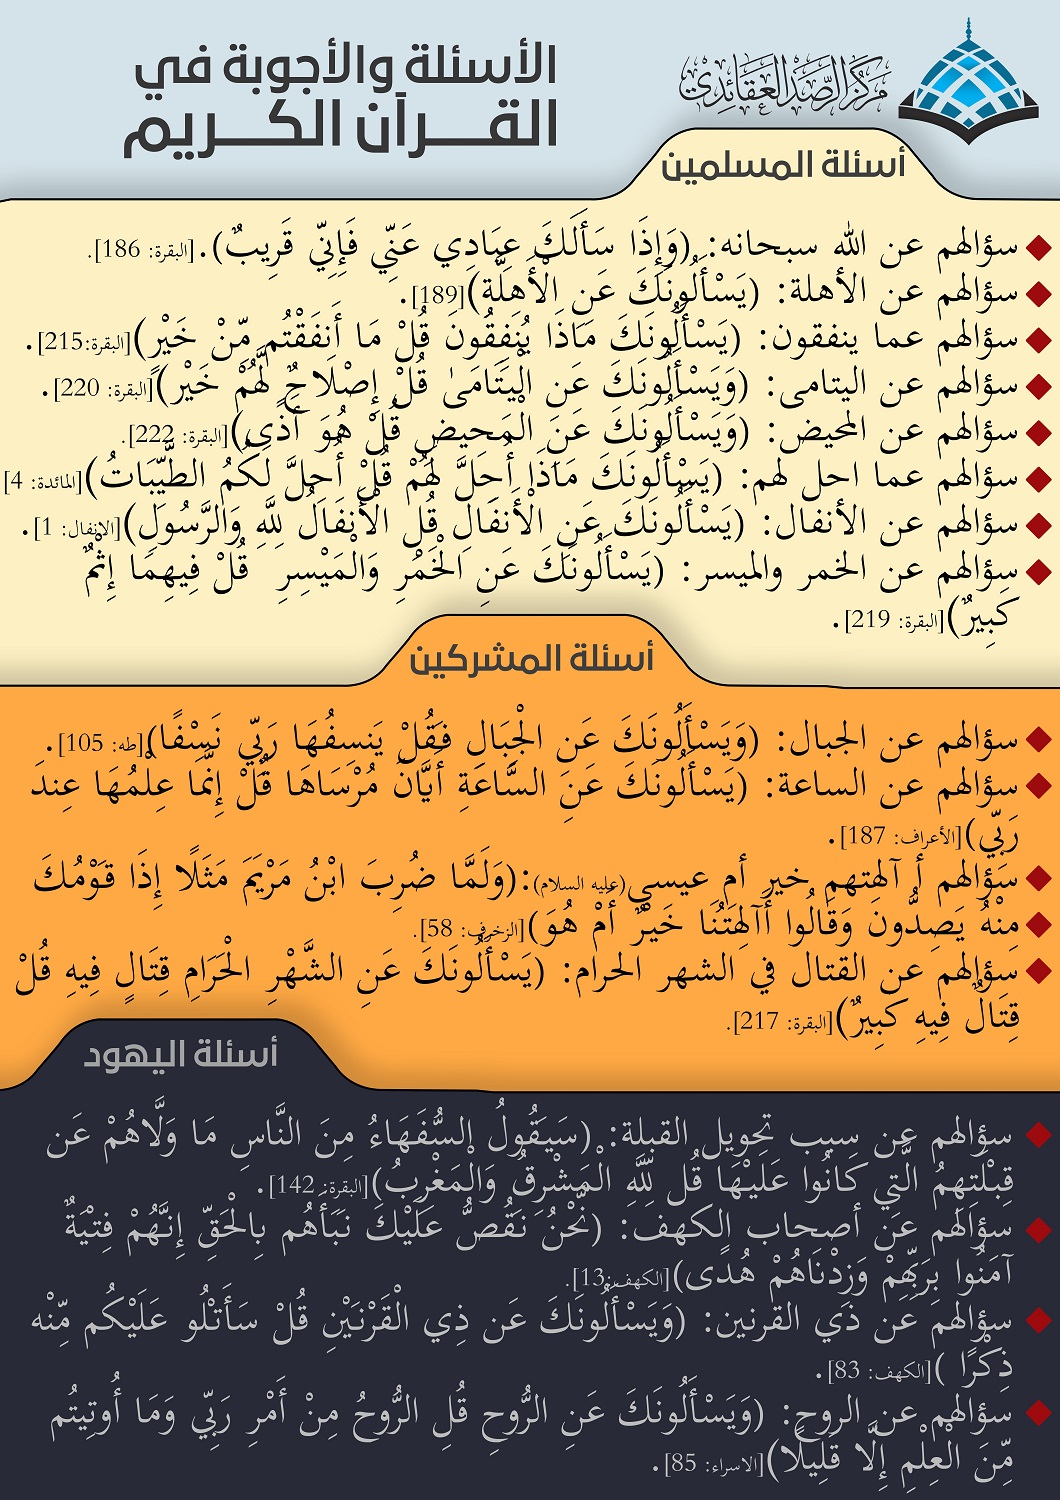 مركز الرصد العقائدي
الأسئلة والأجوبة في
القرآن الكريم
أسئلة المسلمين
سؤالهم عن الله سبحانه: (وَإِذَا سَأَلَكَ عِبَادِي عَنِّي فَإِنِّي قَرِيبٌ).[البقرة: 186].
سؤالهم عن الأهلة: (يَسْأَلُونَكَ عَنِ الْأَهِلَّةِ)[189].
سؤالهم عما ينفقون: (يَسْأَلُونَكَ مَاذَا يُنفِقُونَ قُلْ مَا أَنفَقْتُم مِّنْ خَيْرٍ)[البقرة:215].
سؤالهم عن اليتامى: (وَيَسْأَلُونَكَ عَنِ الْيَتَامَىٰ قُلْ إِصْلَاحٌ لَّهُمْ خَيْرٌ)[البقرة: 220].
سؤالهم عن المحيض: (وَيَسْأَلُونَكَ عَنِ الْمَحِيضِ قُلْ هُوَ أَذًى)[البقرة: 222].
سؤالهم عما احل لهم: (يَسْأَلُونَكَ مَاذَا أُحِلَّ لَهُمْ قُلْ أُحِلَّ لَكُمُ الطَّيِّبَاتُ)[المائدة: 4]
سؤالهم عن الأنفال: (يَسْأَلُونَكَ عَنِ الْأَنفَالِ قُلِ الْأَنفَالُ لِلَّهِ وَالرَّسُولِ)[الانفال: 1].
سؤالهم عن الخمر والميسر: (يَسْأَلُونَكَ عَنِ الْخَمْرِ وَالْمَيْسِرِ قُلْ فِيهِمَا إِثْمٌ
كَبِيرٌ)[البقرة: 219].
أسئلة المشركين
سؤالهم عن الجبال: (وَيَسْأَلُونَكَ عَنِ الْجِبَالِ فَقُلْ يَنسِفُهَا رَبِّي نَسْفًا)[طه: 105].
سؤالهم عن الساعة: (يَسْأَلُونَكَ عَنِ السَّاعَةِ أَيَّانَ مُرْسَاهَا قُلْ إِنَّمَا عِلْمُهَا عِندَ
رَبِّي)[الأعراف: 187].
سؤالهم أ آلهتهم خير أم عيسى(عليه السلام):(وَلَمَّا ضُرِبَ ابْنُ مَرْيَمَ مَثَلًا إِذَا قَوْمُكَ
مِنْهُ يَصِدُّونَ وَقَالُوا أَآلِهَتُنَا خَيْرٌ أَمْ هُوَ)[الزخرف: 58].
سؤالهم عن القتال في الشهر الحرام: (يَسْأَلُونَكَ عَنِ الشَّهْرِ الْحَرَامِ قِتَالٍ فِيهِ قُلْ
قِتَالٌ فِيهِ كَبِيرٌ)[البقرة: 217].
أسئلة اليهود
سؤالهم عن سبب تحويل القبلة: (سَيَقُولُ السُّفَهَاءُ مِنَ النَّاسِ مَا وَلَّاهُمْ عَن
قِبْلَتِهِمُ الَّتِي كَانُوا عَلَيْهَا قُل لِلَّهِ الْمَشْرِقُ وَالْمَغْرِبُ)[البقرة: 142].
سؤالهم عن أصحاب الكهف: (نَّحْنُ نَقُصُّ عَلَيْكَ نَبَأَهُم بِالْحَقِّ إِنَّهُمْ فِتْيَةٌ
آمَنُوا بِرَبِّهِمْ وَزِدْنَاهُمْ هُدًى)[الكهف:13].
سؤالهم عن ذي القرنين: (وَيَسْأَلُونَكَ عَن ذِي الْقَرْنَيْنِ قُلْ سَأَتْلُو عَلَيْكُم مِّنْه
ذِكْرًا )[الكهف: 83].
سؤالهم عن الروح: (وَيَسْأَلُونَكَ عَنِ الرُّوحِ قُلِ الرُّوحُ مِنْ أَمْرِ رَبِّي وَمَا أُوتِيتُم
مِّنَ الْعِلْمِ إِلَّا قَلِيلًا)[الاسراء: 85].